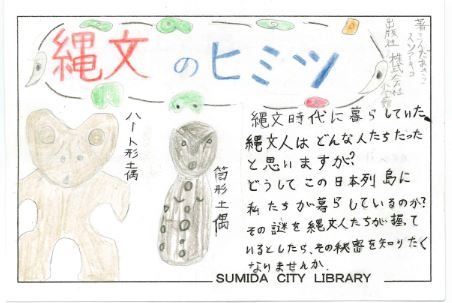 縄文のヒミツ
出版社 株式会社
小学館
ハート形土偶
筒形土偶
縄文時代に暮らしていた
縄文人はどんな人たちだった
と思いますか?
どうしてこの日本列島に
私たちが暮らしているのか?
その謎を縄文人たちが握って
いるとしたら、その秘密を知りたく
なりませんか
SUMIDA CITY LIBRARY